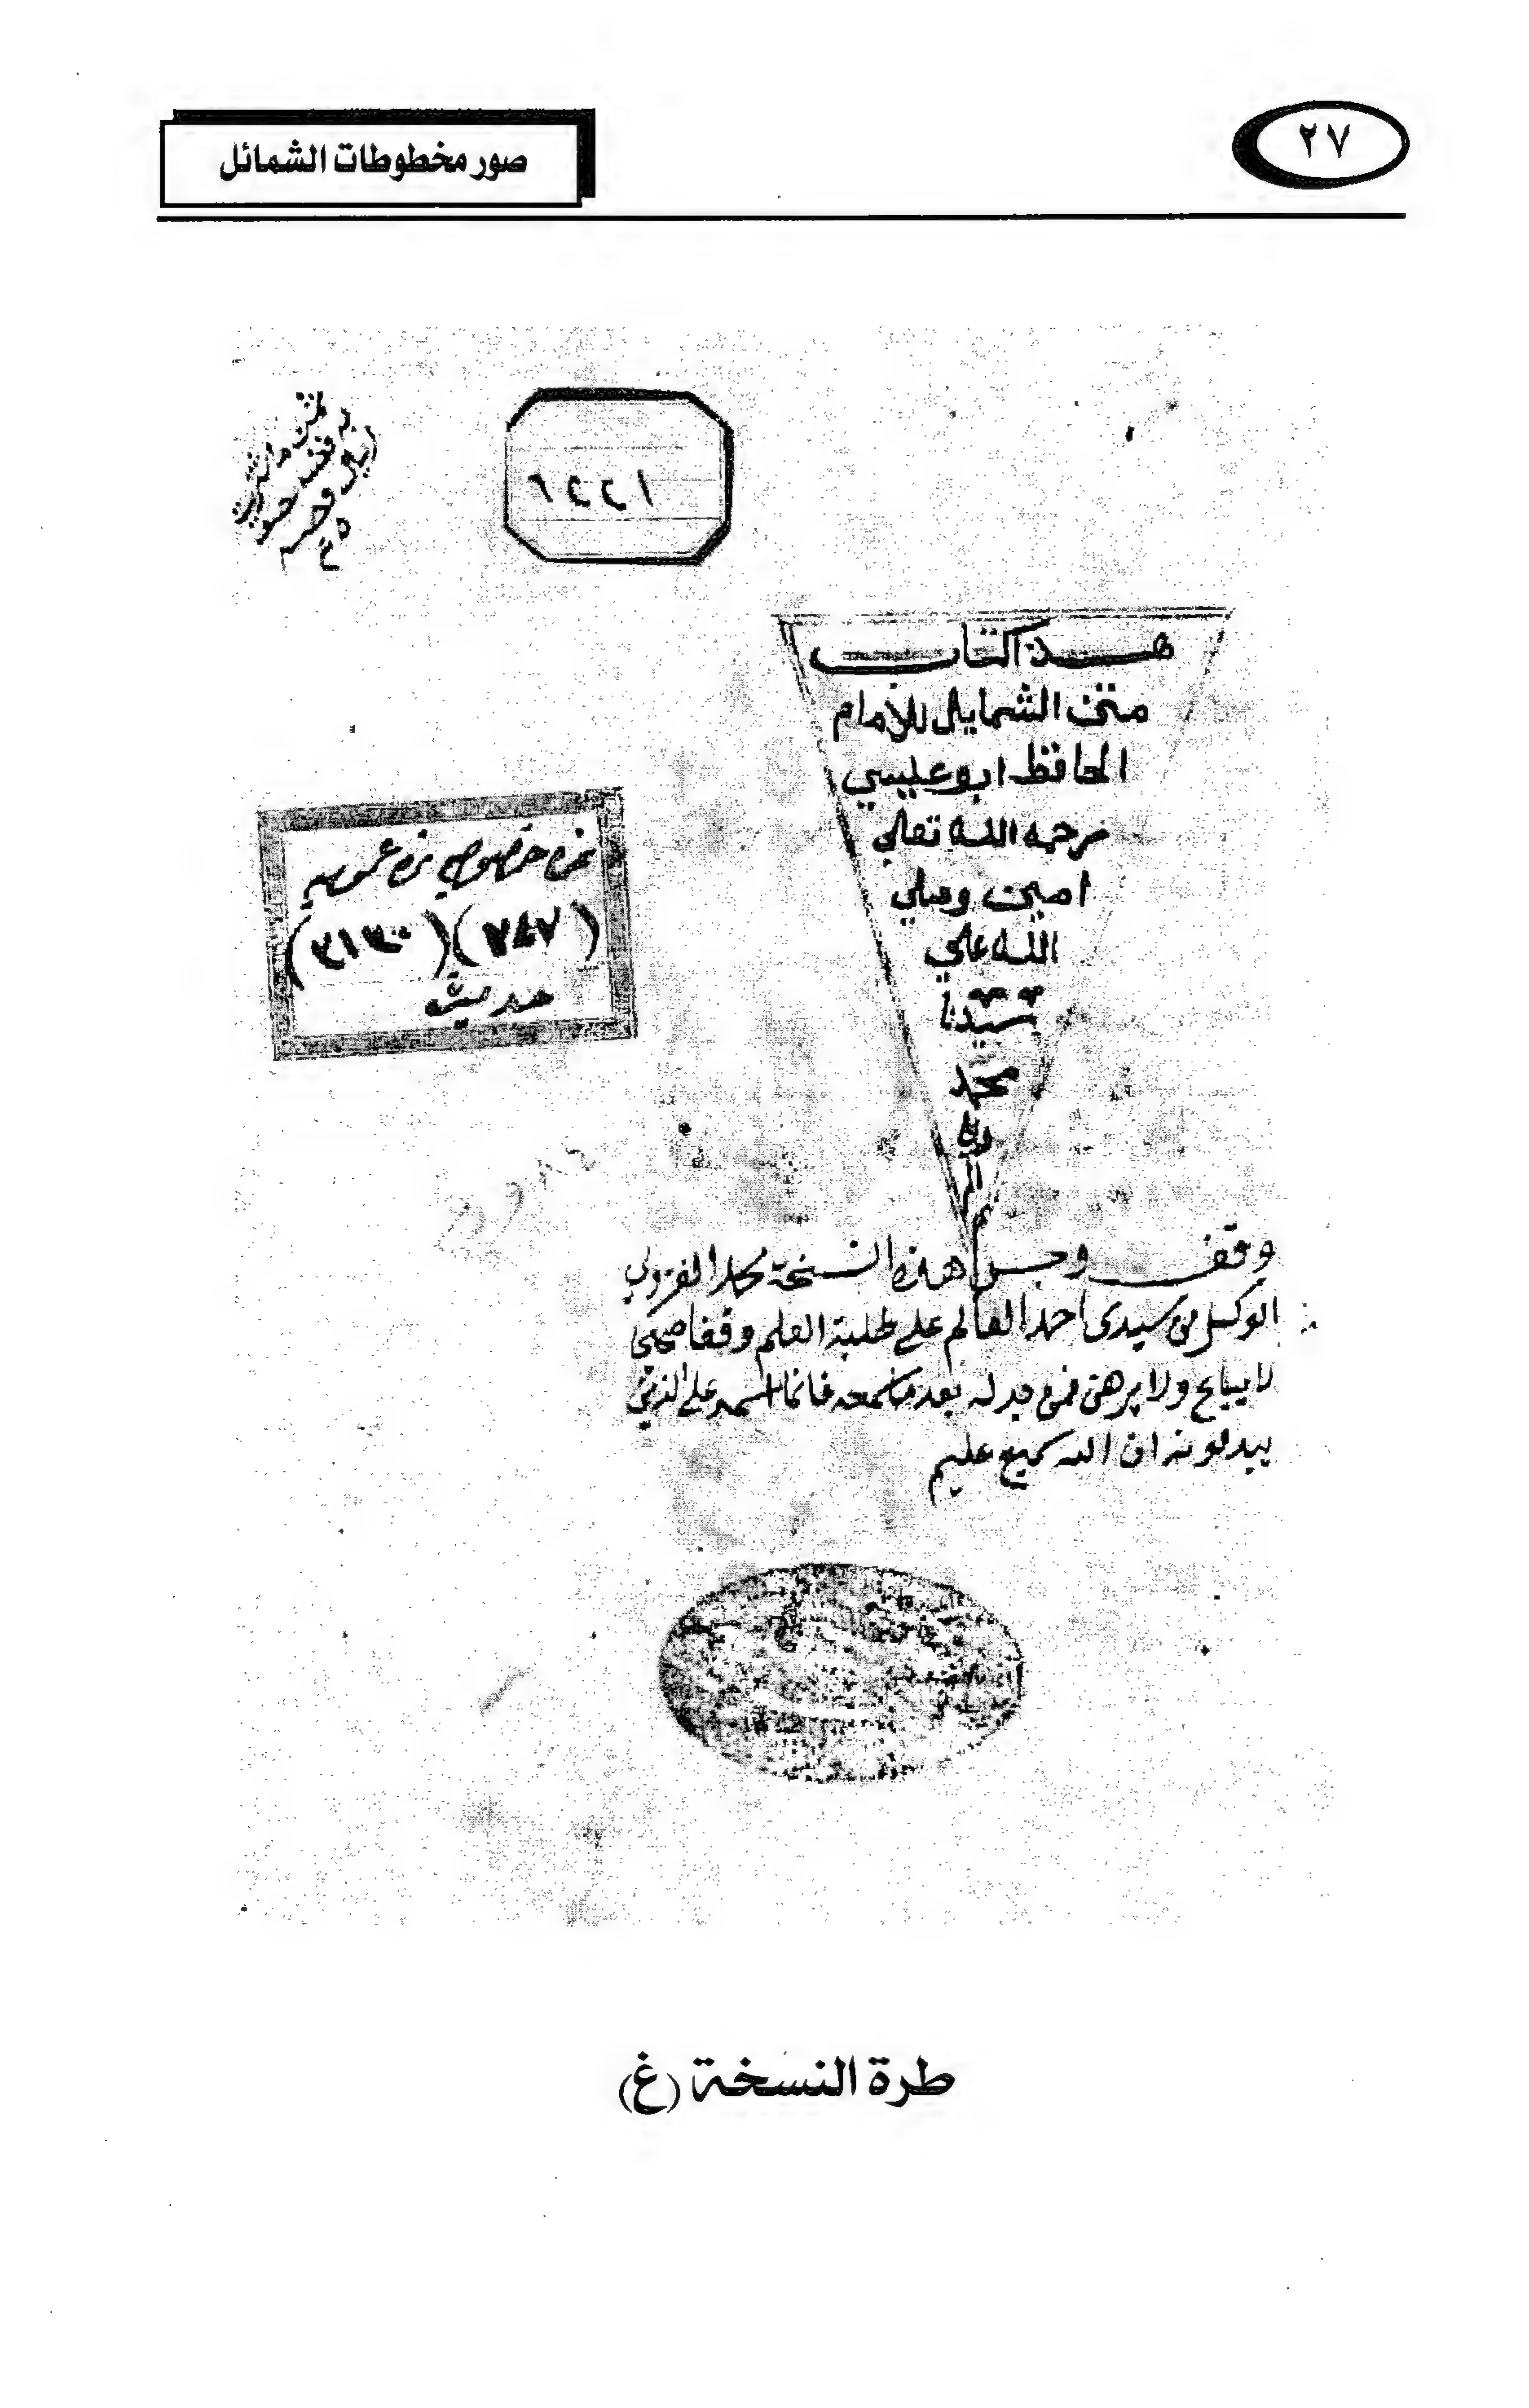 ٢٧
صور مخطوطات الشمائل
١٢٢٦
هـذا كتاب
متن الشمايل للأمام
الحافظ ابو عيسي
رحمه الله تعالي
امين وصلي
الله علي
سيدنا
محمد
وعلى
نمرة خصوصي نمرة عموميه
(٧٤٧) (٣١٣٠)
حديث
وقف وحبس هذه النسخة محمد
الوكيل من سيدى احمد العالم على طلبة العلم وقفا صحيحا
لا يباع ولا يرهن فمن بدله بعد ما سمعه فانما اثمه على الذين
يبدلونه ان الله سميع عليم
طرة النسخة (غ)